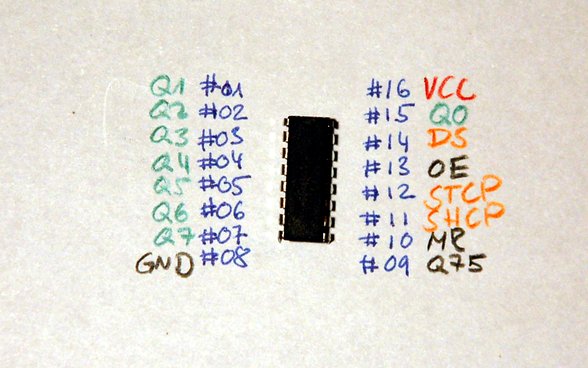 Q1 #01
Q2 #02
Q3 #03
Q4 #04
Q5 #05
Q6 #06
Q7 #07
GND #08
#16 VCC
#15 Q0
#14 DS
#13 OE
#12 STCP
#11 SHCP
#10 MR
#09 Q75